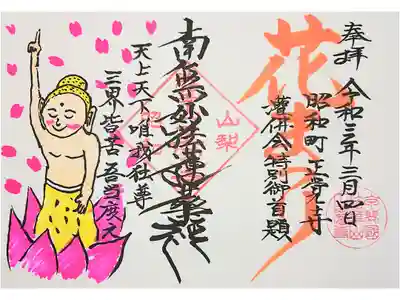 奉拝
令和三年三月四日
昭和町 正覚寺
灌佛会特別御首題
花まつり
山梨
南無妙法蓮華経
天上天下唯我独尊
三界皆苦吾当度之